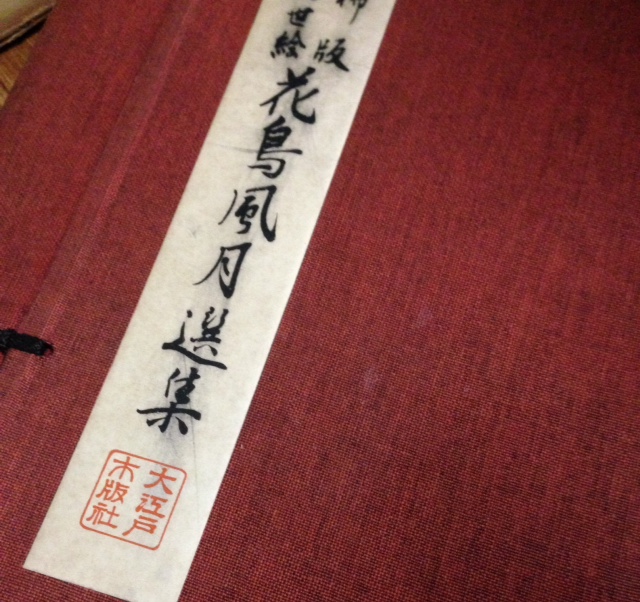 版
世絵
花鳥風月選集
大江戸
木版社